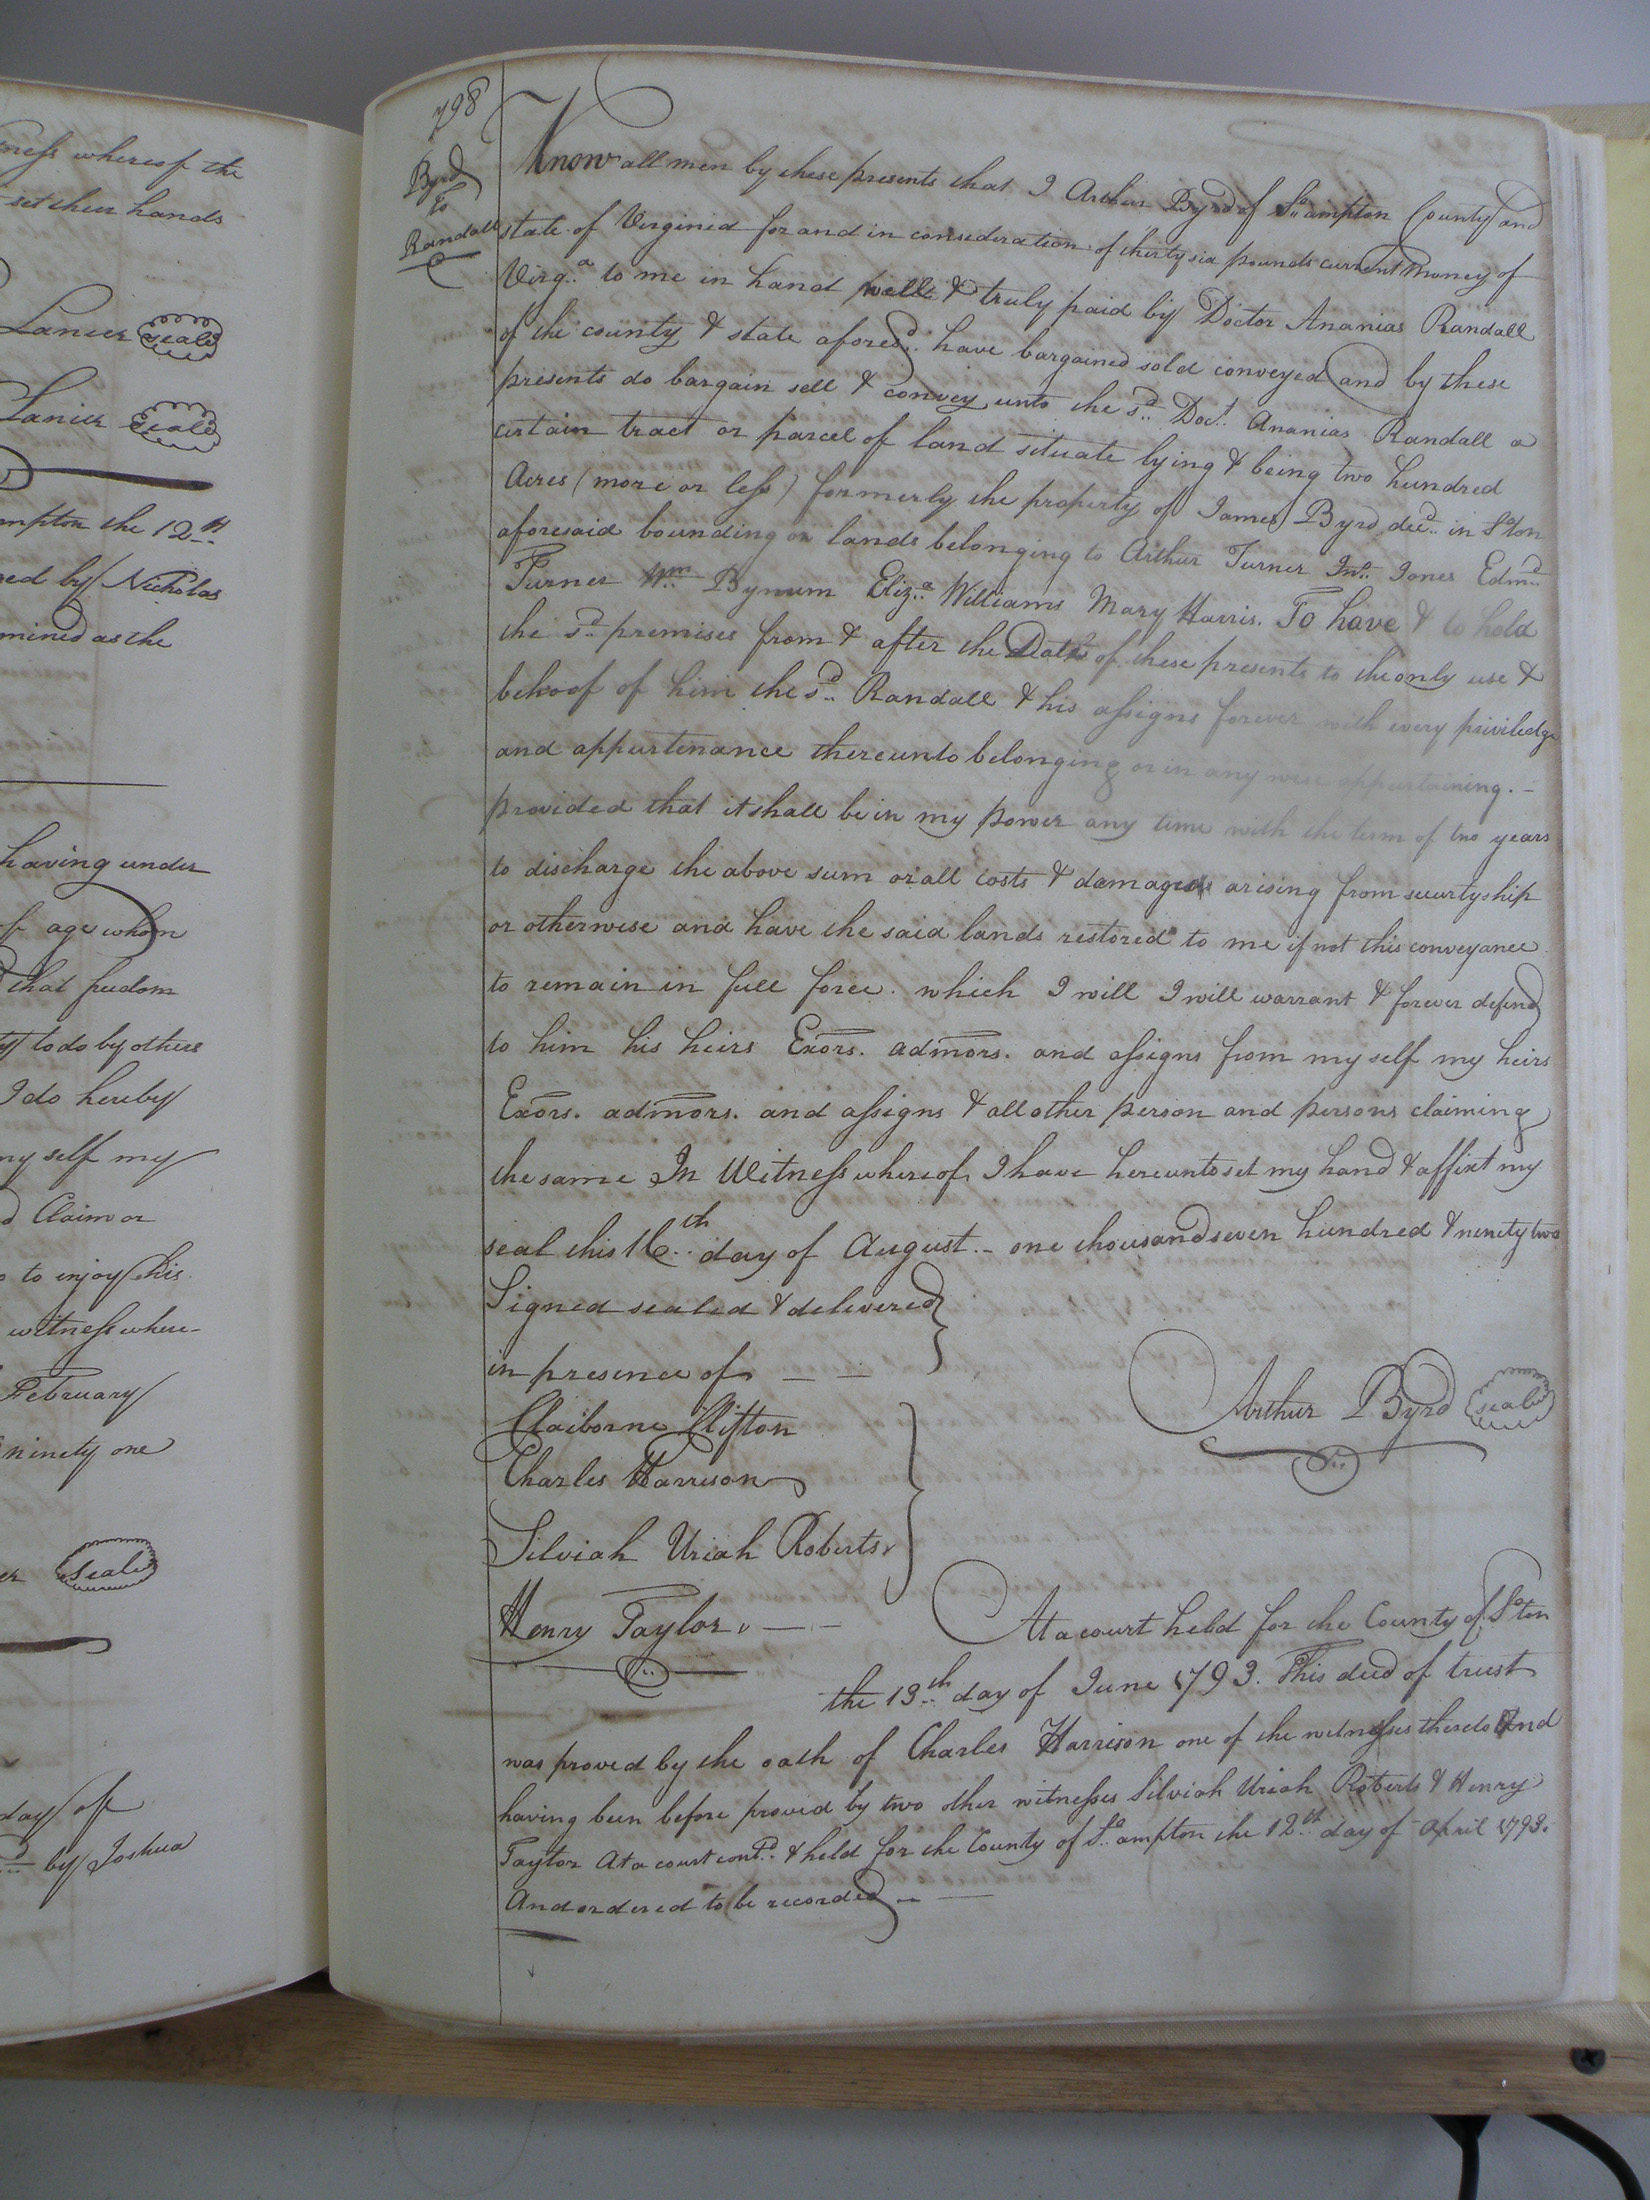 ness whereof the
set their hands
Lanier seal
Lanier Seal
ampton the 12th
ed by Nicholas
mined as the
having under
of age whom
that freedom
to do by others
I do hereby
my self my
d Claim or
to injoy his
witness where-
February
ninety one
seal
day of
by Joshua
798
Byrd
To
Randall
Know all men by these presents that I Arthur Byrd of So. ampton County and
state of Virginia for and in consideration of thirty six pounds current Money of
Virga. to me in hand well & truly paid by Doctor Ananias Randall
of the county & state aforesd. have bargained sold conveyed and by these
presents do bargain sell & convey unto the sd. Doct. Ananias Randall a
certain tract or parcel of land situate lying & being two hundred
Acres (more or less) formerly the property of James Byrd decd. in So.ton
aforesaid bounding on lands belonging to Arthur Turner Jno. Jones Edmd.
Turner Wm. Bynum Eliza. Williams Mary Harris. To have & to hold
the sd. premises from & after the Date of these presents to the only use &
behoof of him the sd. Randall & his assigns forever with every priviledge
and appurtenance thereunto belonging or in any wise appurtaining. -
provided that it shall be in my power any time with the term of two years
to discharge the above sum or all costs & damages arising from securtyship
or otherwise and have the said lands restored to me if not this conveyance
to remain in full force. which I will I will warrant & forever defend
to him his heirs Exors. admors. and assigns from my self my heirs
Exors. admors. and assigns & all other person and persons claiming
the same In Witness whereof I have hereunto set my hand & affixt my
seal this 16th day of August - one thousand seven hundred & ninety two
Signed sealed & delivered
in presence of - -
Arthur Byrd seal
Claiborne Clifton
Charles Harrison
Silviah Uriah Roberts
Henry Taylor
At a court held for the County of So.ton
the 13th day of June 1793. This deed of trust
was proved by the oath of Charles Harrison one of the witnesses thereto And
having been before proved by two other witnesses Silviah Uriah Roberts & Henry
Taylor At a court contd. & held for the County of So. ampton the 12th day of April 1793.
And ordered to be recorded -